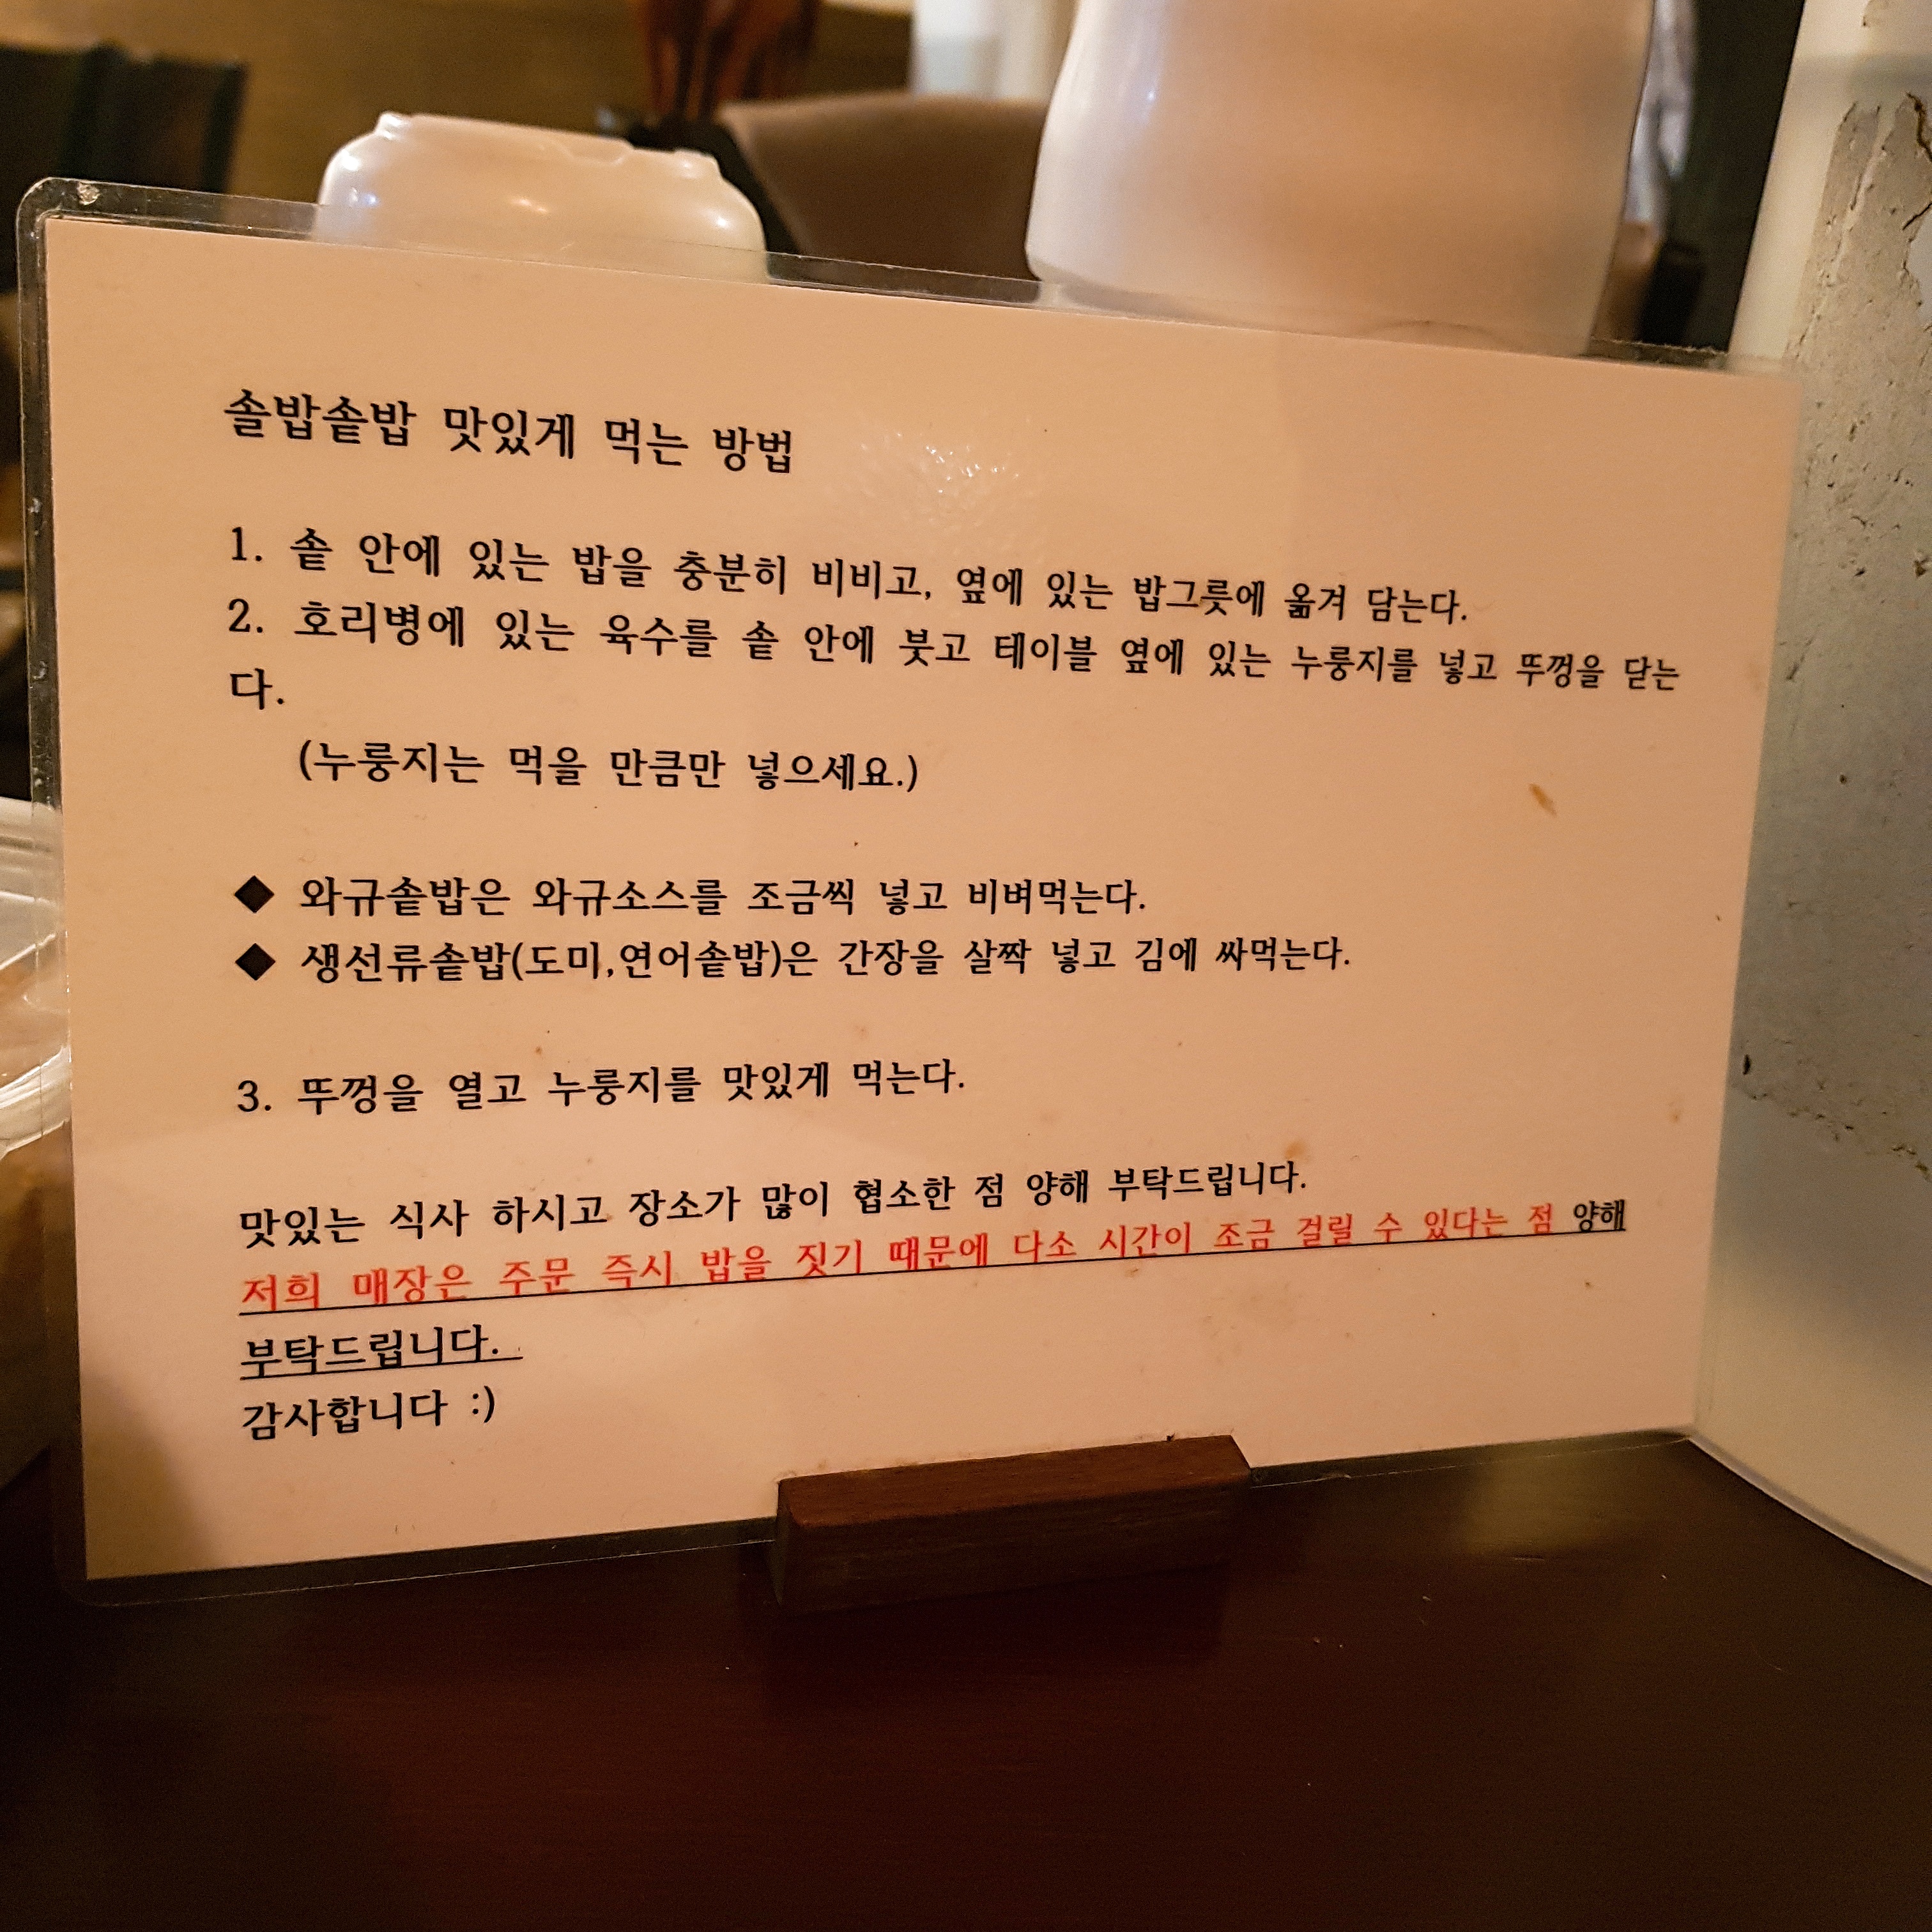 솔밥솥밥 맛있게 먹는 방법
1. 솥 안에 있는 밥을 충분히 비비고, 옆에 있는 밥그릇에 옮겨 담는다.
2. 호리병에 있는 육수를 솥 안에 붓고 테이블 옆에 있는 누룽지를 넣고 뚜껑을 닫는
다.
(누룽지는 먹을 만큼만 넣으세요.)
◆ 와규솥밥은 와규소스를 조금씩 넣고 비벼먹는다.
◆ 생선류솥밥(도미,연어솥밥)은 간장을 살짝 넣고 김에 싸먹는다.
3. 뚜껑을 열고 누룽지를 맛있게 먹는다.
맛있는 식사 하시고 장소가 많이 협소한 점 양해 부탁드립니다.
저희 매장은 주문 즉시 밥을 짓기 때문에 다소 시간이 조금 걸릴 수 있다는 점 양해
부탁드립니다.
감사합니다 :)